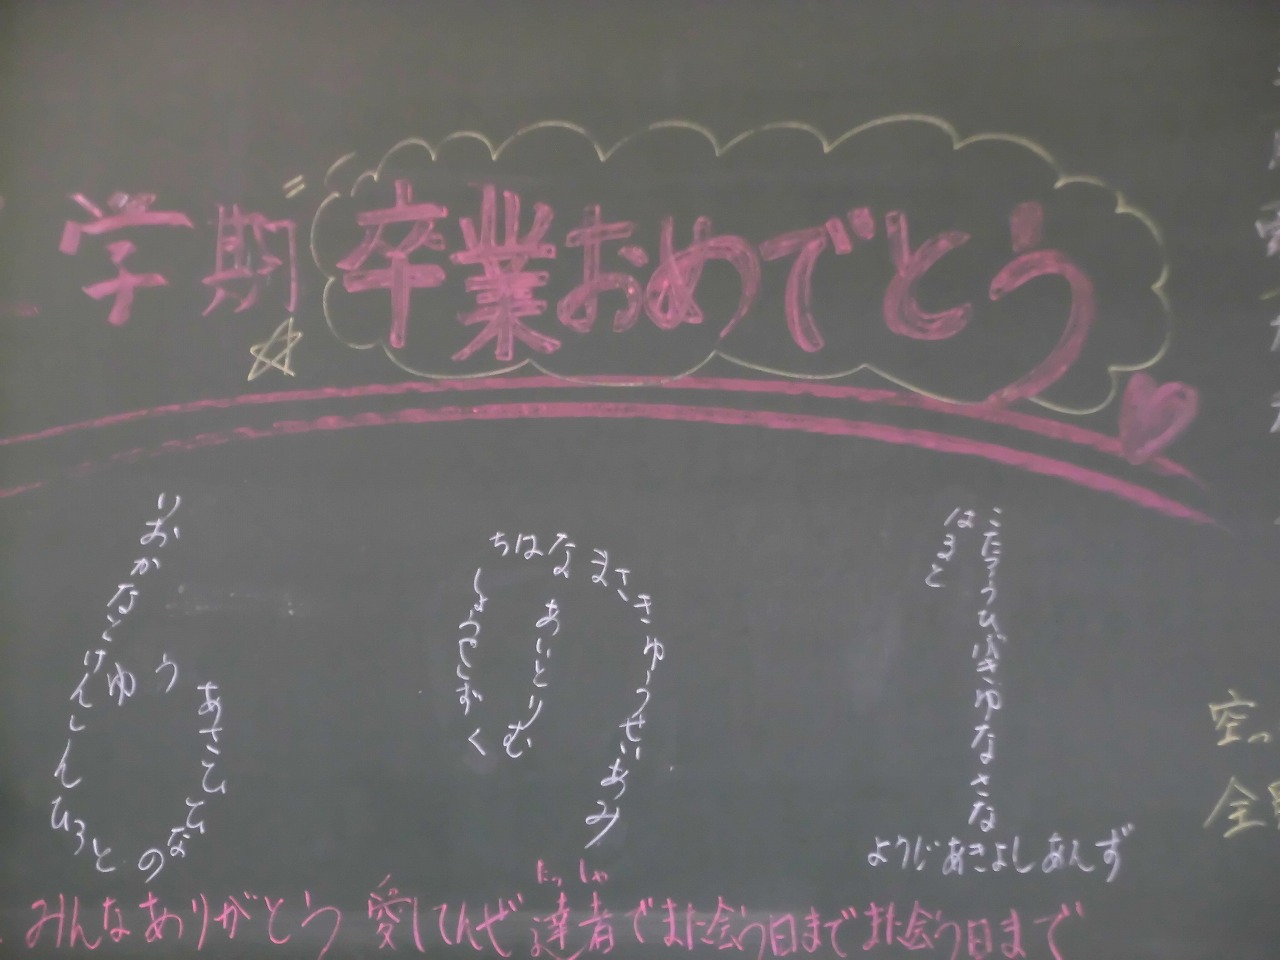 学期 卒業おめでとう
りおかなとけんしんひろとのなひでひさあ
ゆう
ちはなまさきゅうせいあみ
しょうじしずく
あいとりむ
はると
こたろうひびきゆなさな
ようじあきよしあんず
空っ
全
たっしゃ
みんなありがとう 愛してんぜ達者でまた会う日までまた会う日まで